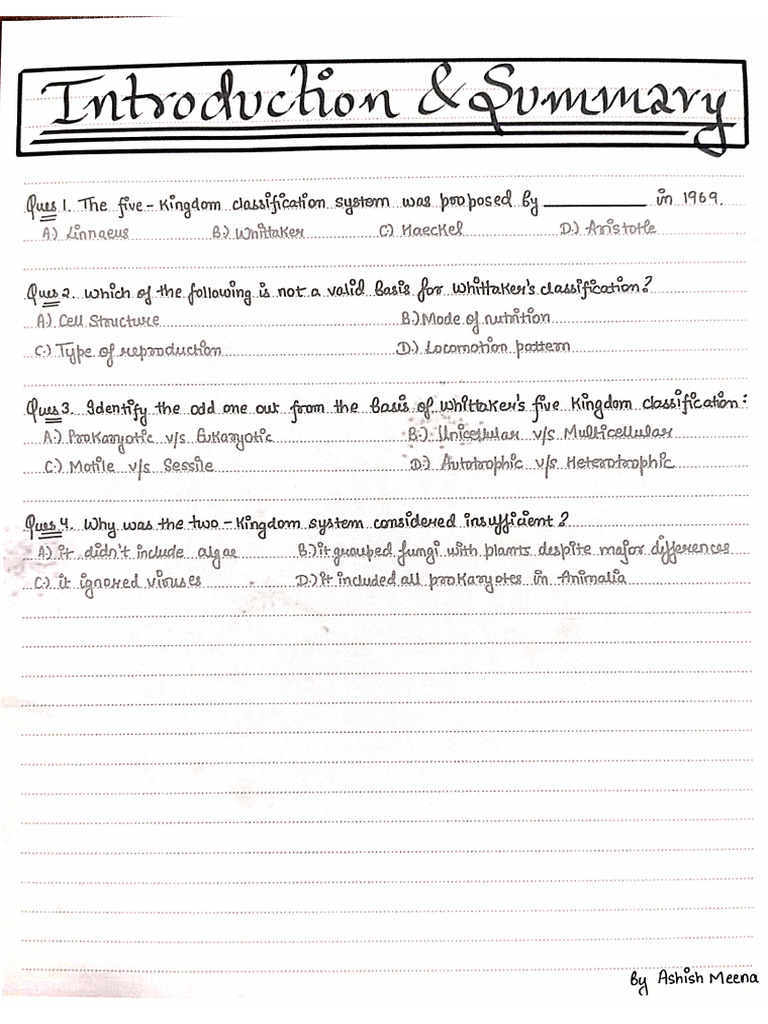 Introduction & Summary
Ques 1. The five-Kingdom classification system was proposed by __________ in 1969.
A.) Linnaeus B.) Whittaker C.) Haeckel D.) Aristotle
Ques 2. Which of the following is not a valid basis for Whittaker's classification?
A.) Cell Structure B.) Mode of nutrition
C.) Type of reproduction D.) Locomotion pattern
Ques 3. Identify the odd one out from the basis of Whittaker's five Kingdom classification:
A.) Prokaryotic v/s Eukaryotic B.) Unicellular v/s Multicellular
C.) Motile v/s Sessile D.) Autotrophic v/s Heterotrophic
Ques 4. Why was the two-Kingdom system considered insufficient?
A.) it didn't include algae B.) it grouped fungi with plants despite major differences
C.) it ignored viruses D.) it included all prokaryotes in Animalia
By Ashish Meena